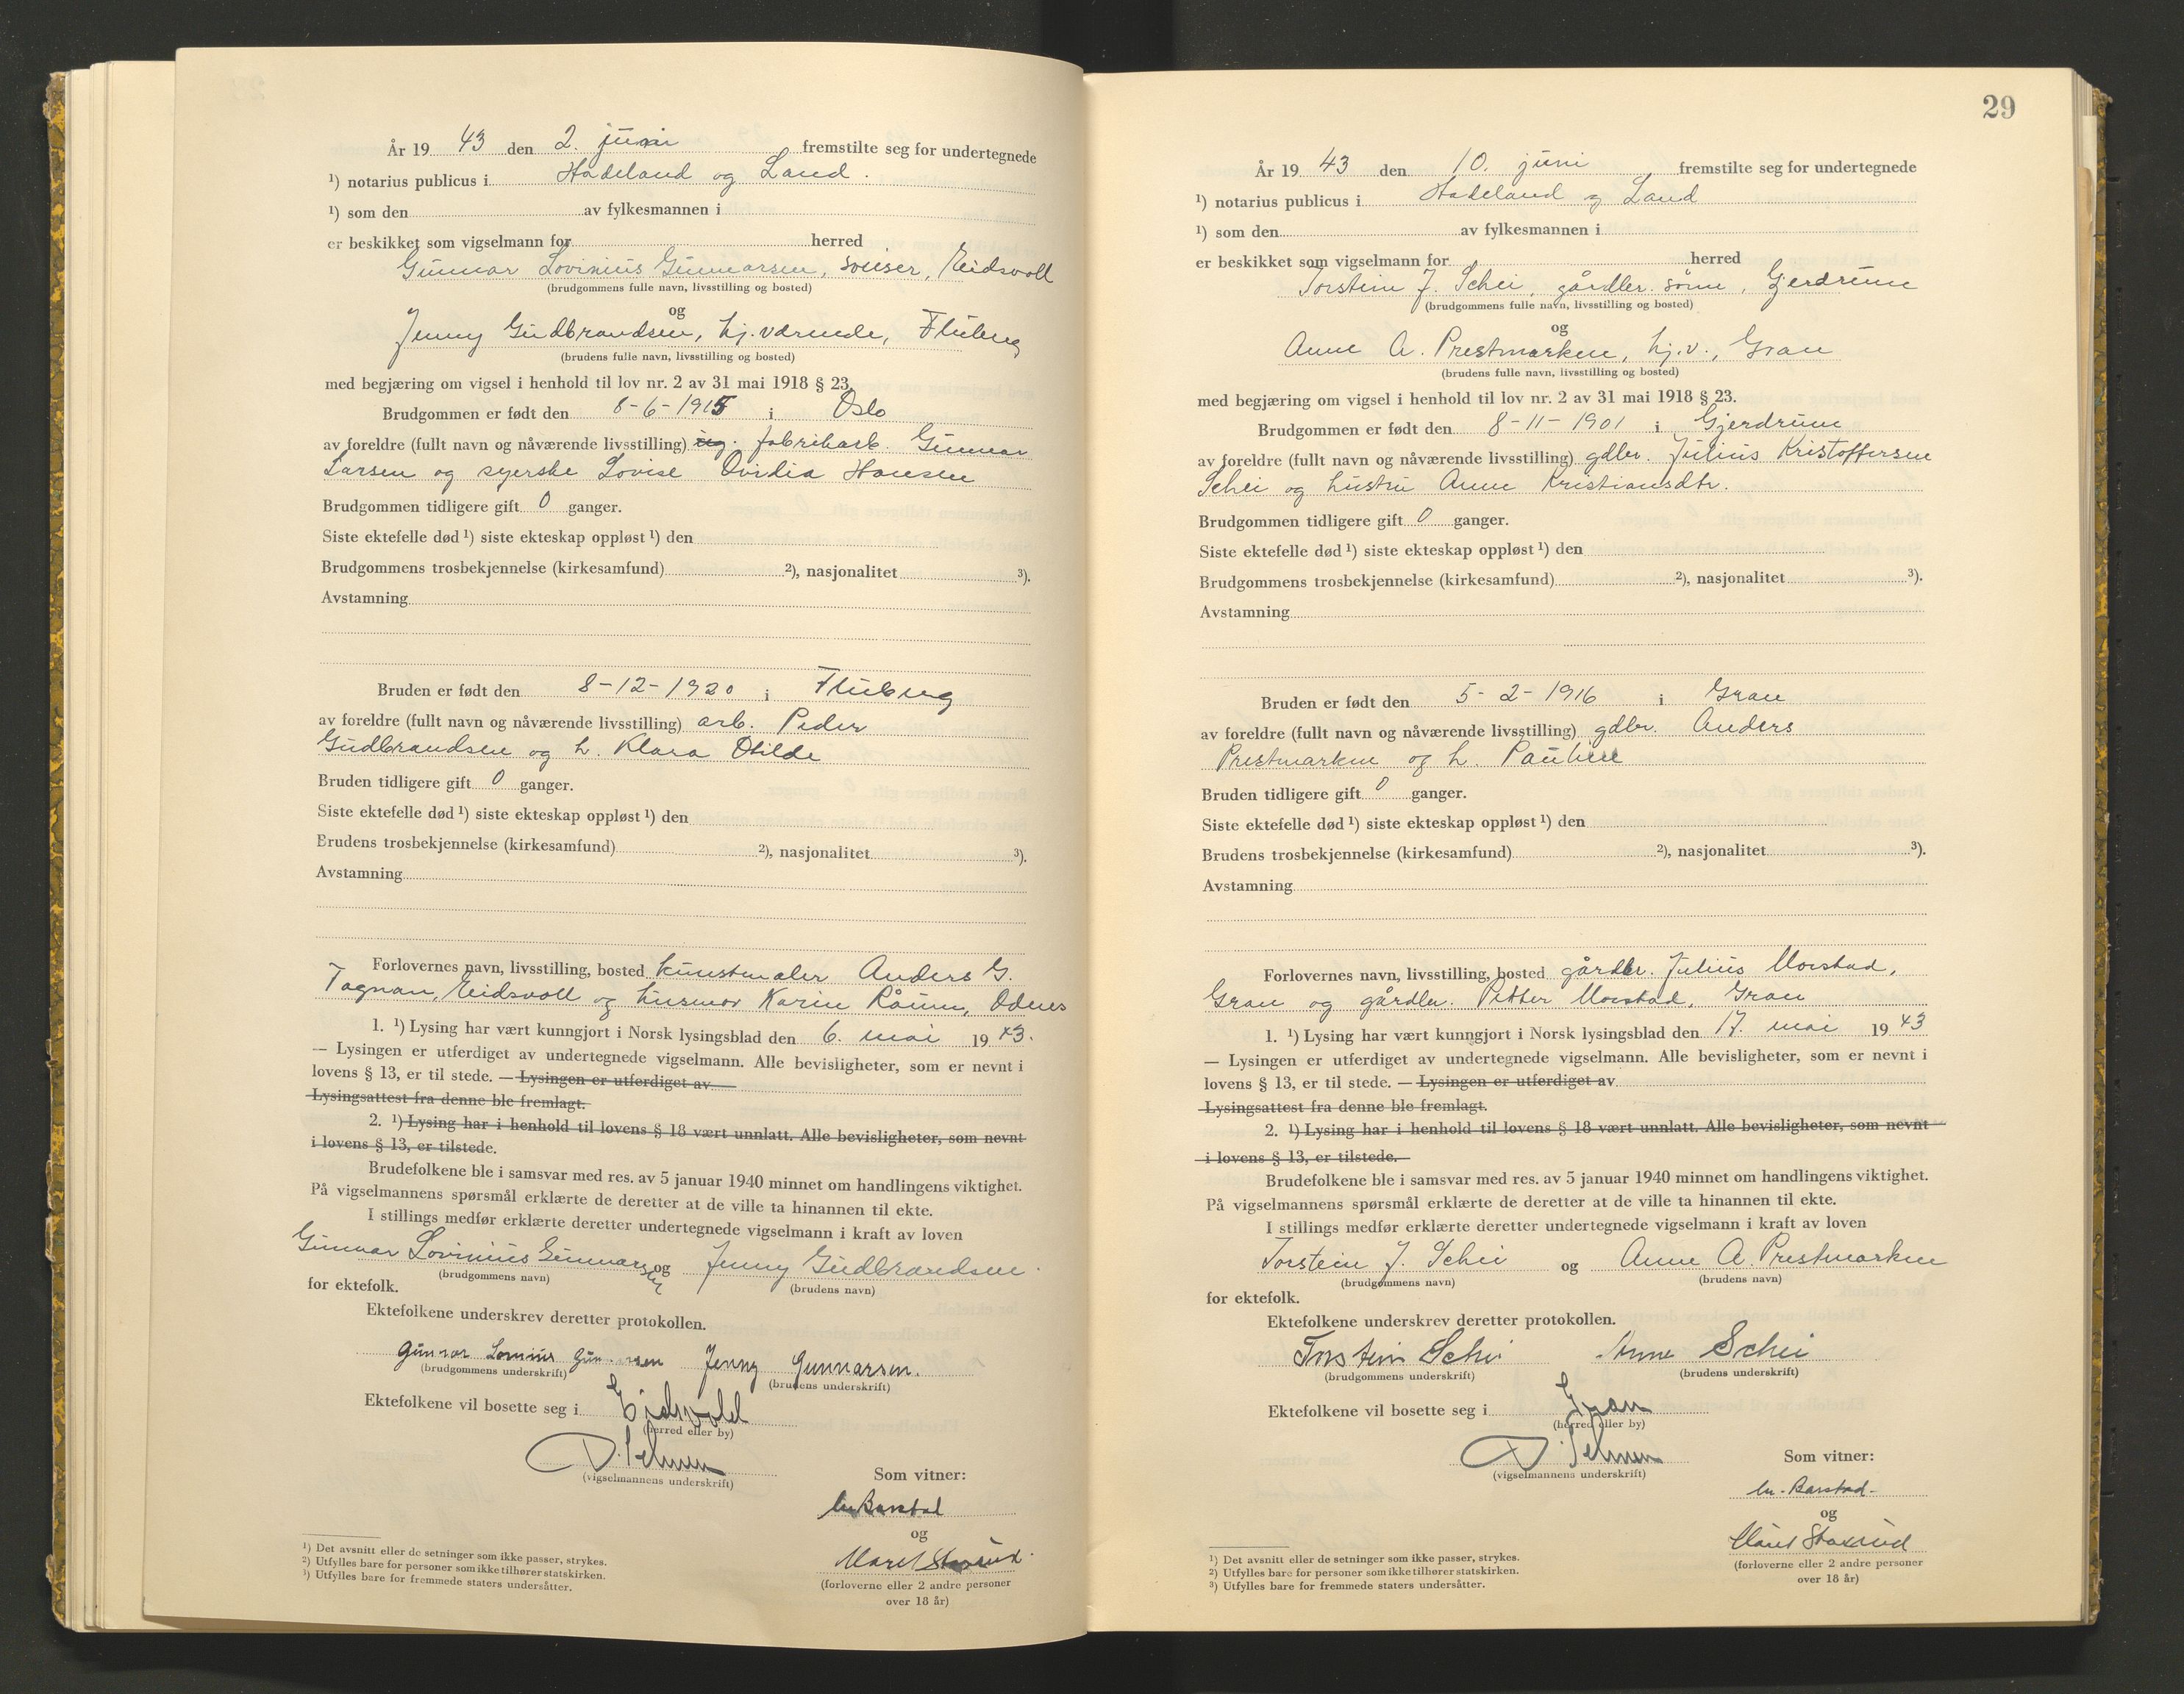 År 19 43 den 2. juni fremstilte seg for undertegnede
¹) notarius publicus i Hadeland og Land.
¹) som den av fylkesmannen i
er beskikket som vigselmann for herred
Gunnar Lovinius Gunnarsen, sveiser, Eidsvoll
(brudgommens fulle navn, livsstilling og bosted)
og
Jenny Gudbrandsen, hj.værende, Fluberg
(brudens fulle navn, livsstilling og bosted)
med begjæring om vigsel i henhold til lov nr. 2 av 31 mai 1918 § 23.
Brudgommen er født den 8-6-1915 i Oslo
av foreldre (fullt navn og nåværende livsstilling) fabrikarb. Gunnar
Larsen og syerske Lovise Ovidia Hansen
Brudgommen tidligere gift 0 ganger.
Siste ektefelle død ¹) siste ekteskap oppløst ¹) den
Brudgommens trosbekjennelse (kirkesamfund) ²), nasjonalitet ³).
Avstamning
Bruden er født den 8-12-1920 i Fluberg
av foreldre (fullt navn og nåværende livsstilling) arb. Peder
Gudbrandsen og h. Klara Otilde
Bruden tidligere gift 0 ganger.
Siste ektefelle død ¹) siste ekteskap oppløst ¹) den
Brudens trosbekjennelse (kirkesamfund) ²), nasjonalitet ³).
Avstamning
Forlovernes navn, livsstilling, bosted kunstmaler Anders G.
Tagnan, Eidsvoll og husmor Karin Råum, Odnes
1. ¹) Lysing har vært kunngjort i Norsk lysingsblad den 6. mai 19 43.
— Lysingen er utferdiget av undertegnede vigselmann. Alle bevisligheter, som er nevnt i
lovens § 13, er til stede. — Lysingen er utferdiget av
Lysingsattest fra denne ble fremlagt.
2. ¹) Lysing har i henhold til lovens § 18 vært unnlatt. Alle bevisligheter, som nevnt
i lovens § 13, er tilstede.
Brudefolkene ble i samsvar med res. av 5 januar 1940 minnet om handlingens viktighet.
På vigselmannens spørsmål erklærte de deretter at de ville ta hinannen til ekte.
I stillings medfør erklærte deretter undertegnede vigselmann i kraft av loven
Gunnar Lovinius Gunnarsen og Jenny Gudbrandsen
(brudgommens navn) (brudens navn)
for ektefolk.
Ektefolkene underskrev deretter protokollen.
Gunnar Lovinius Jenny Gunnarsen.
(brudgommens underskrift) (brudens underskrift)
Ektefolkene vil bosette seg i Eidsvold
(herred eller by)
(vigselmannens underskrift)
Som vitner:
og
(forloverne eller 2 andre personer
over 18 år)
¹) Det avsnitt eller de setninger som ikke passer, strykes.
²) Utfylles bare for personer som ikke tilhører statskirken.
³) Utfylles bare for fremmede staters undersåtter.
29
År 19 43 den 10. juni fremstilte seg for undertegnede
¹) notarius publicus i Hadeland og Land
¹) som den av fylkesmannen i
er beskikket som vigselmann for herred
Torstein J. Schei, gårdbr. sønn, Gjerdrum
(brudgommens fulle navn, livsstilling og bosted)
og
Anne A. Prestmarken, hj.v., Gran
(brudens fulle navn, livsstilling og bosted)
med begjæring om vigsel i henhold til lov nr. 2 av 31 mai 1918 § 23.
Brudgommen er født den 8-11-1901 i Gjerdrum
av foreldre (fullt navn og nåværende livsstilling) gdbr. Julius Kristoffersen
Schei og hustru Anne Kristiansdtr.
Brudgommen tidligere gift 0 ganger.
Siste ektefelle død ¹) siste ekteskap oppløst ¹) den
Brudgommens trosbekjennelse (kirkesamfund) ²), nasjonalitet ³).
Avstamning
Bruden er født den 5-2-1916 i Gran
av foreldre (fullt navn og nåværende livsstilling) gdbr. Anders
Prestmarken og h. Pauline
Bruden tidligere gift 0 ganger.
Siste ektefelle død ¹) siste ekteskap oppløst ¹) den
Brudens trosbekjennelse (kirkesamfund) ²), nasjonalitet ³).
Avstamning
Forlovernes navn, livsstilling, bosted gårdbr. Julius Morstad,
Gran og gårdbr. Petter Morstad, Gran
1. ¹) Lysing har vært kunngjort i Norsk lysingsblad den 17. mai 19 43
— Lysingen er utferdiget av undertegnede vigselmann. Alle bevisligheter, som er nevnt i
lovens § 13, er til stede. — Lysingen er utferdiget av
Lysingsattest fra denne ble fremlagt.
2. ¹) Lysing har i henhold til lovens § 18 vært unnlatt. Alle bevisligheter, som nevnt
i lovens § 13, er tilstede.
Brudefolkene ble i samsvar med res. av 5 januar 1940 minnet om handlingens viktighet.
På vigselmannens spørsmål erklærte de deretter at de ville ta hinannen til ekte.
I stillings medfør erklærte deretter undertegnede vigselmann i kraft av loven
Torstein J. Schei og Anne A. Prestmarken
(brudgommens navn) (brudens navn)
for ektefolk.
Ektefolkene underskrev deretter protokollen.
Torstein Schei Anne Schei
(brudgommens underskrift) (brudens underskrift)
Ektefolkene vil bosette seg i Gran
(herred eller by)
(vigselmannens underskrift)
Som vitner:
og
(forloverne eller 2 andre personer
over 18 år)
¹) Det avsnitt eller de setninger som ikke passer, strykes.
²) Utfylles bare for personer som ikke tilhører statskirken.
³) Utfylles bare for fremmede staters undersåtter.